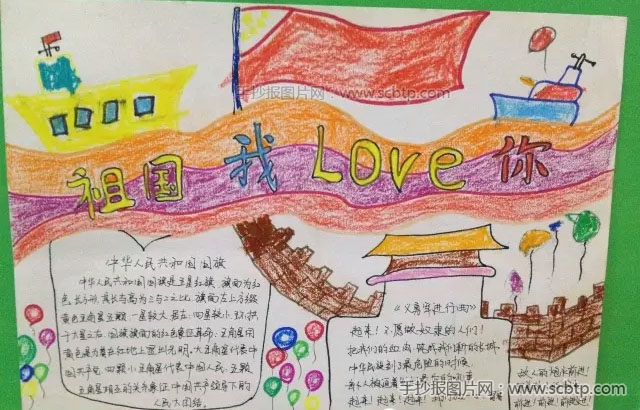 手抄报图片网:www.scbtp.com
祖国我Love你
中华人民共和国国旗
中华人民共和国国旗是五星红旗,旗面为红
色,长方形,其长与高为三与二之比,旗面左上方缀
黄色五角星五颗,一星较大,居左,四星较小,环拱
于大星之右,国旗旗面的红色象征革命,五角星用
黄色是为着在红地上显出光明。大五角星代表中
国共产党,四颗小五角星代表中国人民,五颗
五角星相互的关系象征中国共产党领导下的
人民大团结。
《义勇军进行曲》
起来!不愿做奴隶的人们!
把我们的血肉,筑成我们新的长城,
中华民族到了最危险的时候
每个人被迫着
起来!起来!起来!
敌人的炮火前进!
前进!前进!前进!
手抄报图片网:www.scbtp.com